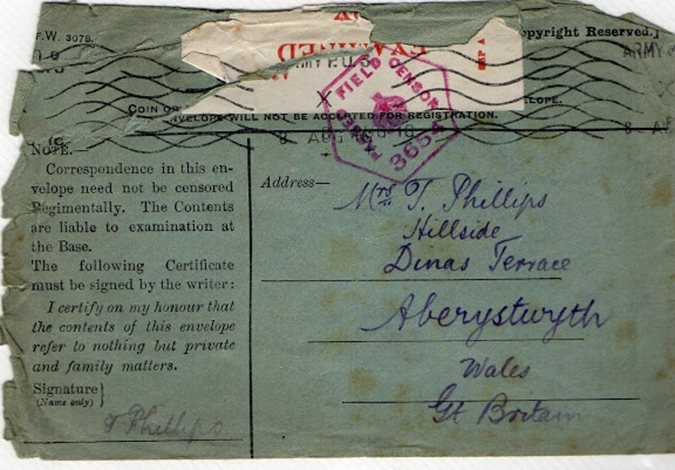 F.W. 3078.
Copyright Reserved.]
EXAMINED
ARMY
PASSED FIELD CENSOR
3654
COIN OR
ENVELOPE.
ENVELOPE WILL NOT BE ACCEPTED FOR REGISTRATION.
8 AUG
NOTE.
Correspondence in this en-
velope need not be censored
Regimentally. The Contents
are liable to examination at
the Base.
The following Certificate
must be signed by the writer:
I certify on my honour that
the contents of this envelope
refer to nothing but private
and family matters.
Signature}
(Name only)
T Phillips
Address—
Mrs T. Phillips
Hillside
Dinas Terrace
Aberystwyth
Wales
Gt Britain